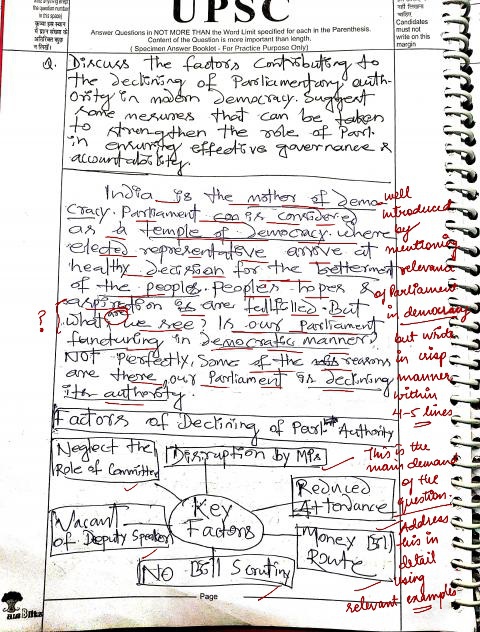 any thing except
the question number
in this space)
कृपया इस स्थान
में प्रश्न संख्या के
अतिरिक्त कुछ
न लिखें)
UPSC
Answer Questions in NOT MORE THAN the Word Limit specified for each in the Parenthesis.
Content of the Question is more important than length.
( Specimen Answer Booklet - For Practice Purpose Only )
नहीं लिखना
चाहिए
Candidates
must not
write on this
margin
Q. Discuss the factors contributing to
the declining of Parliamentary auth-
ority in modern democracy. Suggest
some mesures that can be taken
to strengthen the role of Parl.
in ensuring effective governance &
accountability.
India is the mother of demo
cracy. Parliament is considered
as a temple of democracy. where
elected representative arrive at
healthy decision for the betterment
of the people. Peoples hopes &
aspiration are fulfilled. But
what we see? Is our Parliament
functuring in democratic manner?
NOT Perfectly, Some of the reasons
are there, our Parliament is declining
its authority.
well
introduced
by
mentioning
relevance
of Parliament
in democracy
but write
in crisp
manner
within
4-5 lines
?
are
Factors of Declining of Parl Authority
Neglect the
Role of Committee
Disruption by MPs
Reduced
Attendance
Key
Factors
Vacant
of Deputy Speaker
Money Bill
Route
No Bill Scrutiny
This is the
main demand
of the
question.
Address
this in
detail
using
relevant examples
Page